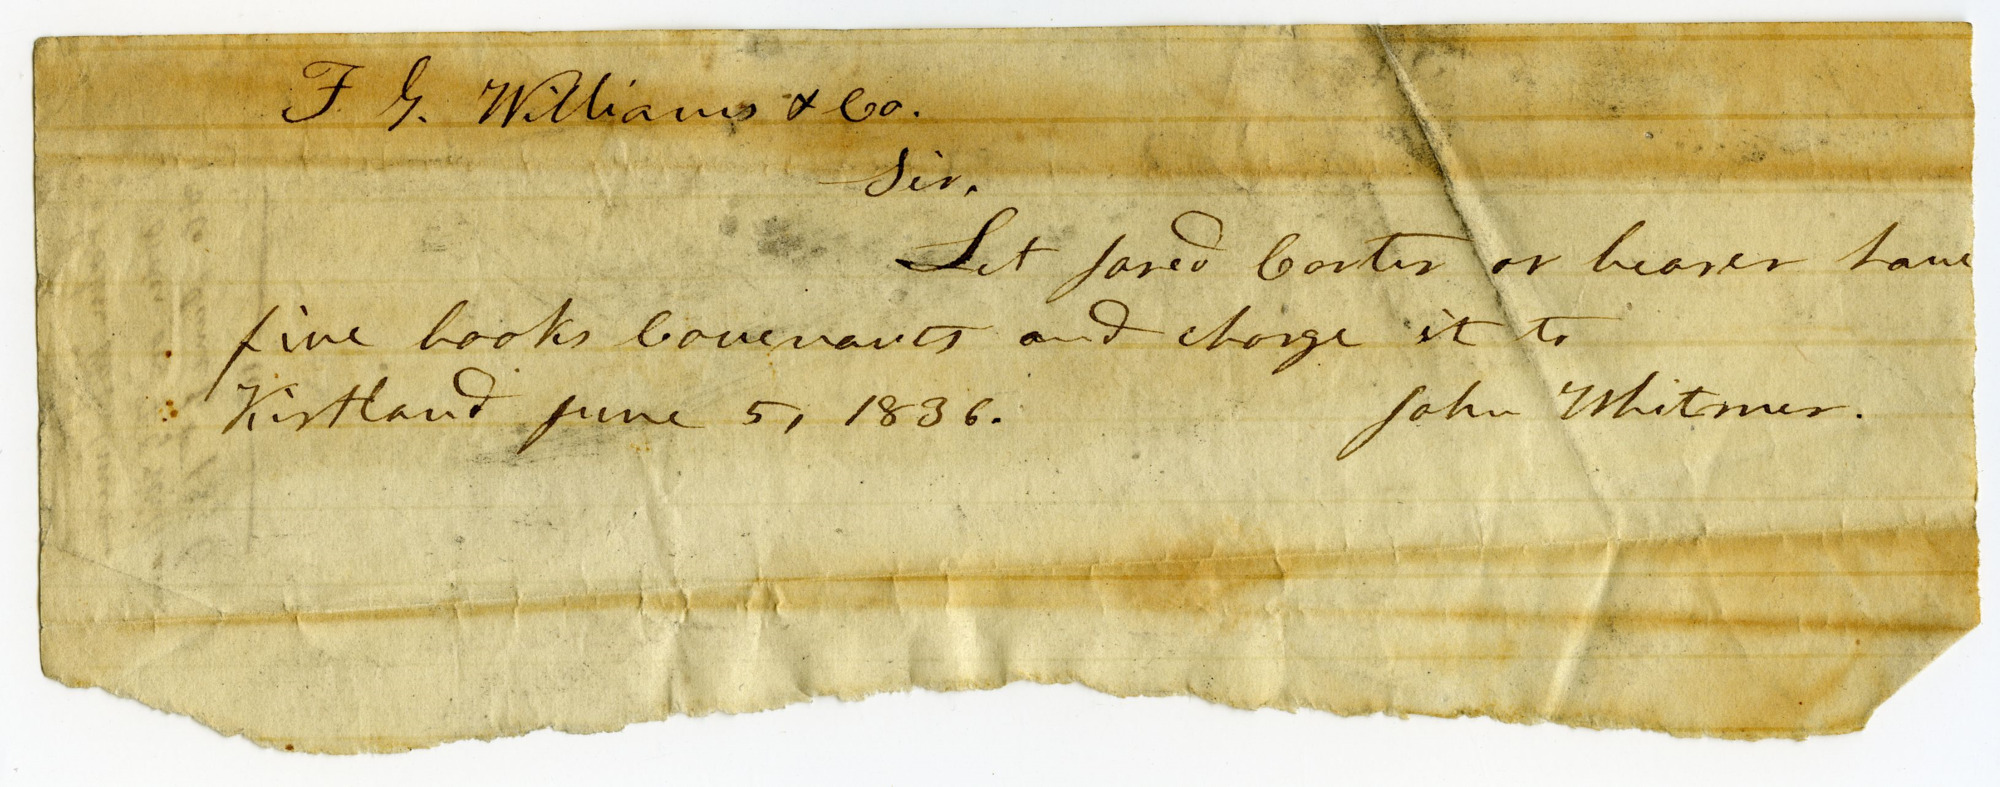 F G. Williams & Co.
Sir.
Let Jared Carter or bearer have
five books Covenants and charge it to
Kirtland June 5, 1836. John Whitmer.